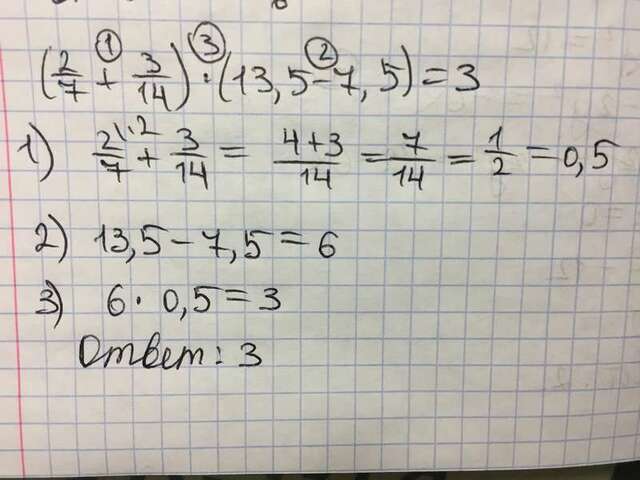 (2/7 + 3/14) · (13,5 - 7,5) = 3
① ③ ②
1) 2\·2/7 + 3/14 = 4+3/14 = 7/14 = 1/2 = 0,5
2) 13,5 - 7,5 = 6
3) 6 · 0,5 = 3
Ответ: 3